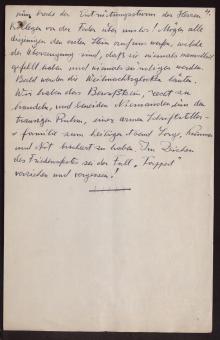 nun breche der Entrüstungssturm der Herren
Kollegen von der Feder über uns los! Mögen alle
diejenigen den ersten Stein auf uns werfen, welche
der Überzeugung sind, daß sie niemals
gefehlt haben und niemals sündigen werden.
Bald werden die Weihnachtsglocken läuten.
Wir haben das Bewußtsein, recht zu
handeln, und beneiden Niemanden um den
traurigen Ruhm, einer armen Schriftsteller-
familie zum heiligen Abend Sorge, Kummer
und Not beschert zu haben. Im Zeichen
des Friedensfestes sei der Fall
verziehen und vergessen!